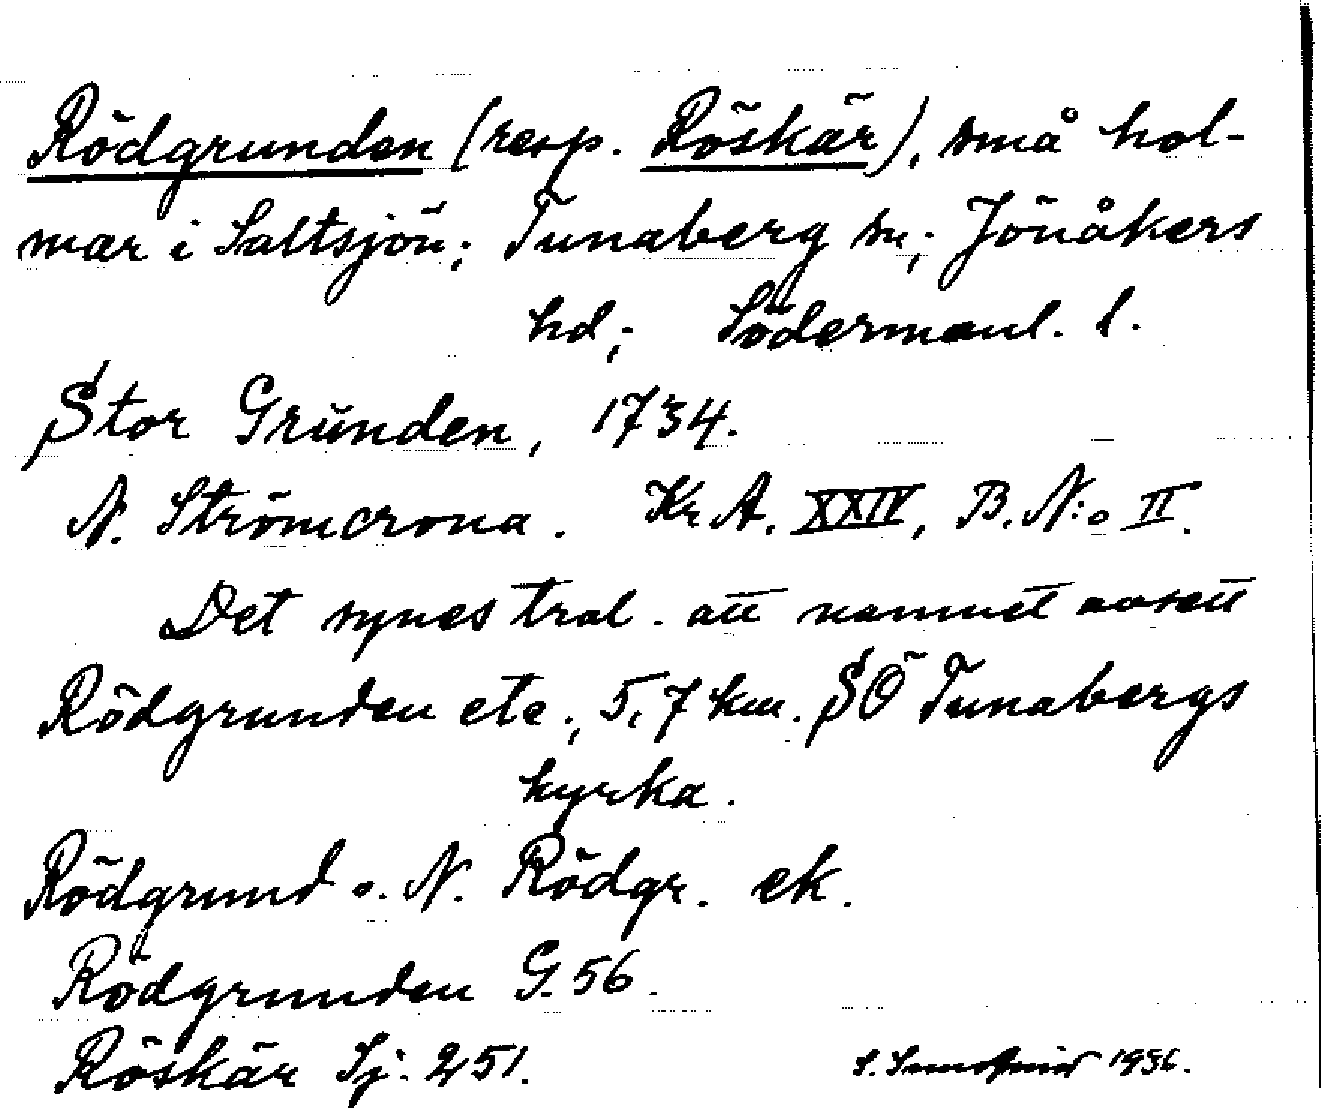 Rödgrunden (resp. Röskär), små hol-
mar i Saltsjön; Tunaberg sn; Jönåkers
hd; Södermanl. l.
Stor Grunden, 1734.
N. Strömcrona. Kr. A. XXIV, B. N:o II.
Det synes tral. att namnet avsett
Rödgrunden etc., 5,7 km. SÖ Tunabergs
kyrka.
Rödgrund o. N. Rödgr. ek.
Rödgrunden G. 56.
Röskär Sj. 251.
S. 1936.